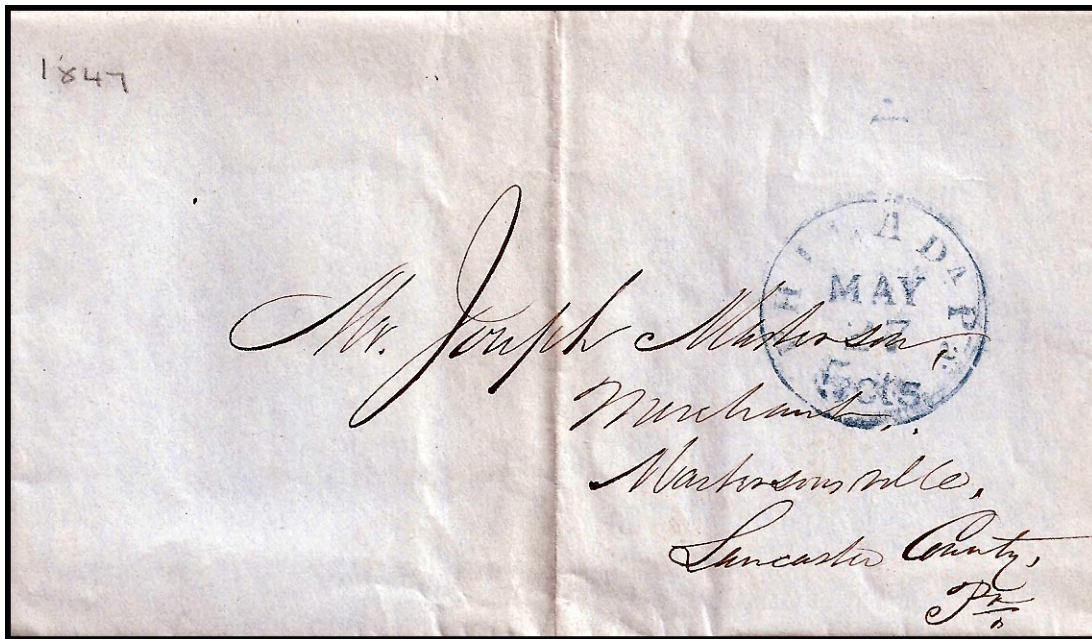 1847
PHILADA Pa
MAY
27
5cts
Mr. Joseph Masterson,
Merchant,
Mastersonville,
Lancaster County,
Pa